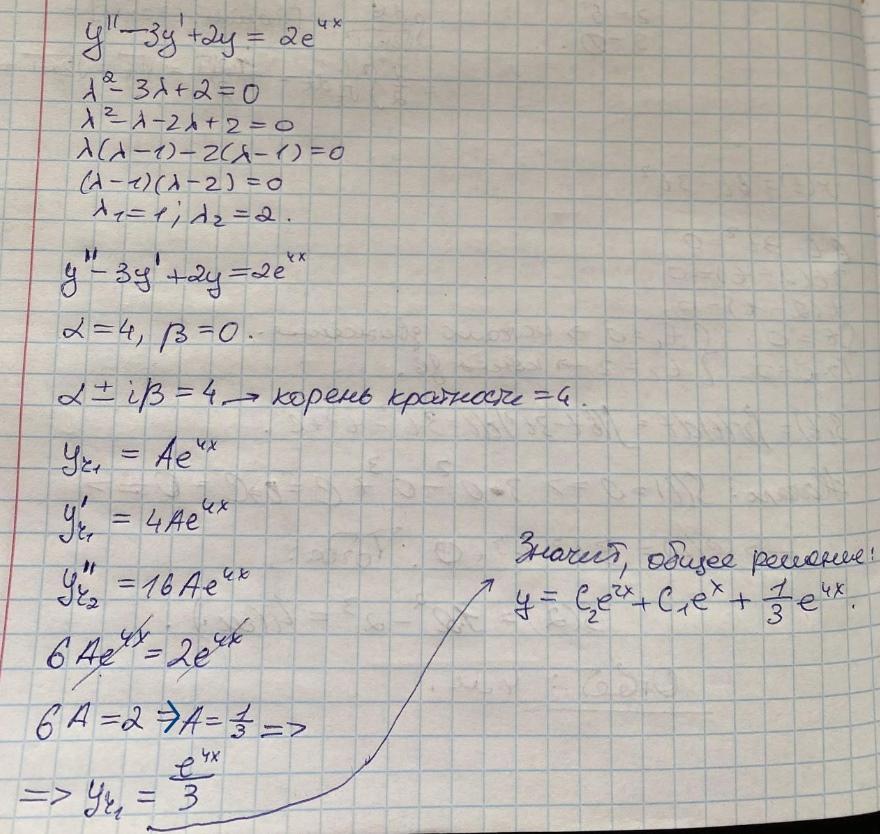 y'' - 3y' + 2y = 2e^{4x}
λ² - 3λ + 2 = 0
λ² - λ - 2λ + 2 = 0
λ(λ - 1) - 2(λ - 1) = 0
(λ - 1)(λ - 2) = 0
λ₁ = 1; λ₂ = 2.
y'' - 3y' + 2y = 2e^{4x}
α = 4, β = 0.
α ± iβ = 4 → корень кратности = 4.
y_{ч₁} = Ae^{4x}
y'_{ч₁} = 4Ae^{4x}
y''_{ч₂} = 16Ae^{4x}
6Ae^{4x} = 2e^{4x}
6A = 2 => A = 1/3 =>
=> y_{ч₁} = e^{4x}/3
Значит, общее решение:
y = C₂e^{2x} + C₁e^{x} + 1/3 e^{4x}.